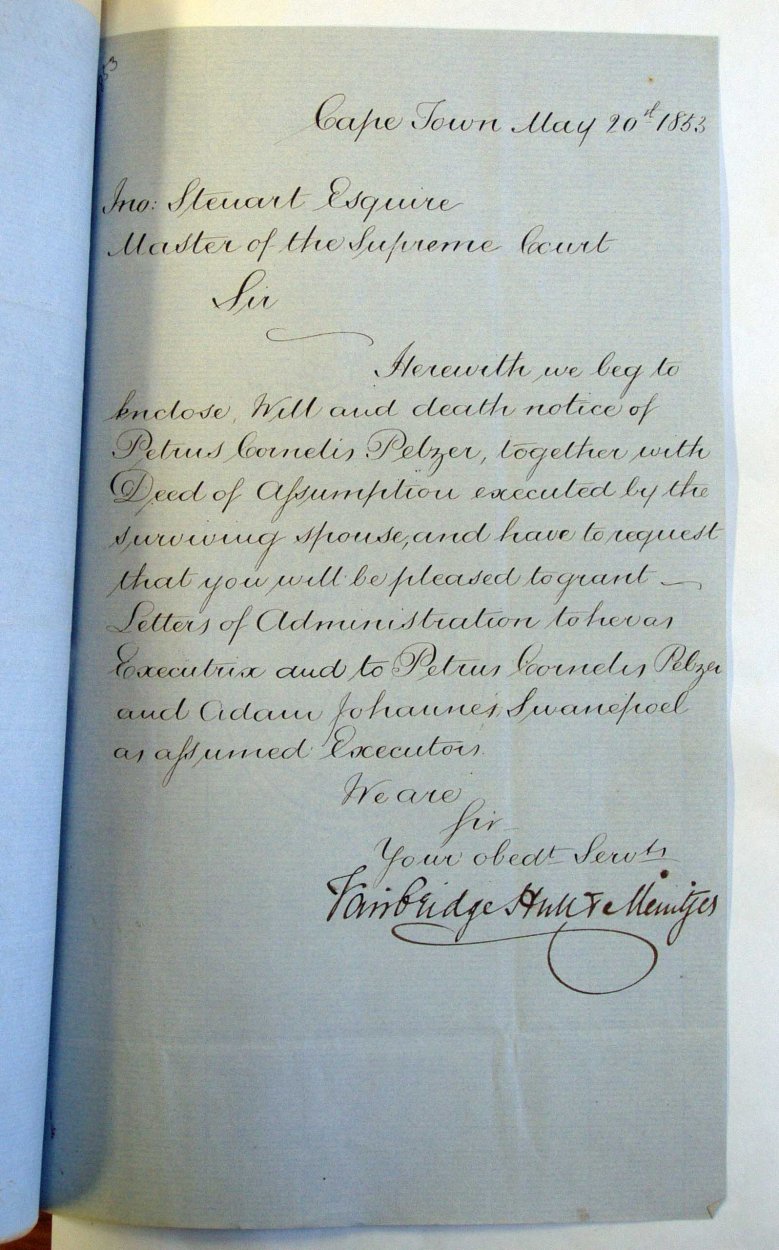 Cape Town May 20st 1853
Jno: Steuart Esquire
Master of the Supreme Court
Sir
Herewith we beg to
enclose, Will and death notice of
Petrus Cornelis Pelzer, together with
Deed of Assumption executed by the
surviving spouse, and have to request
that you will be pleased to grant
Letters of Administration to her as
Executrix and to Petrus Cornelis Pelzer
and Adam Johannes Swanepoel
as assumed Executors.
We are
Sir
Your obedt Servts
Fairbridge Hull & Meintjes